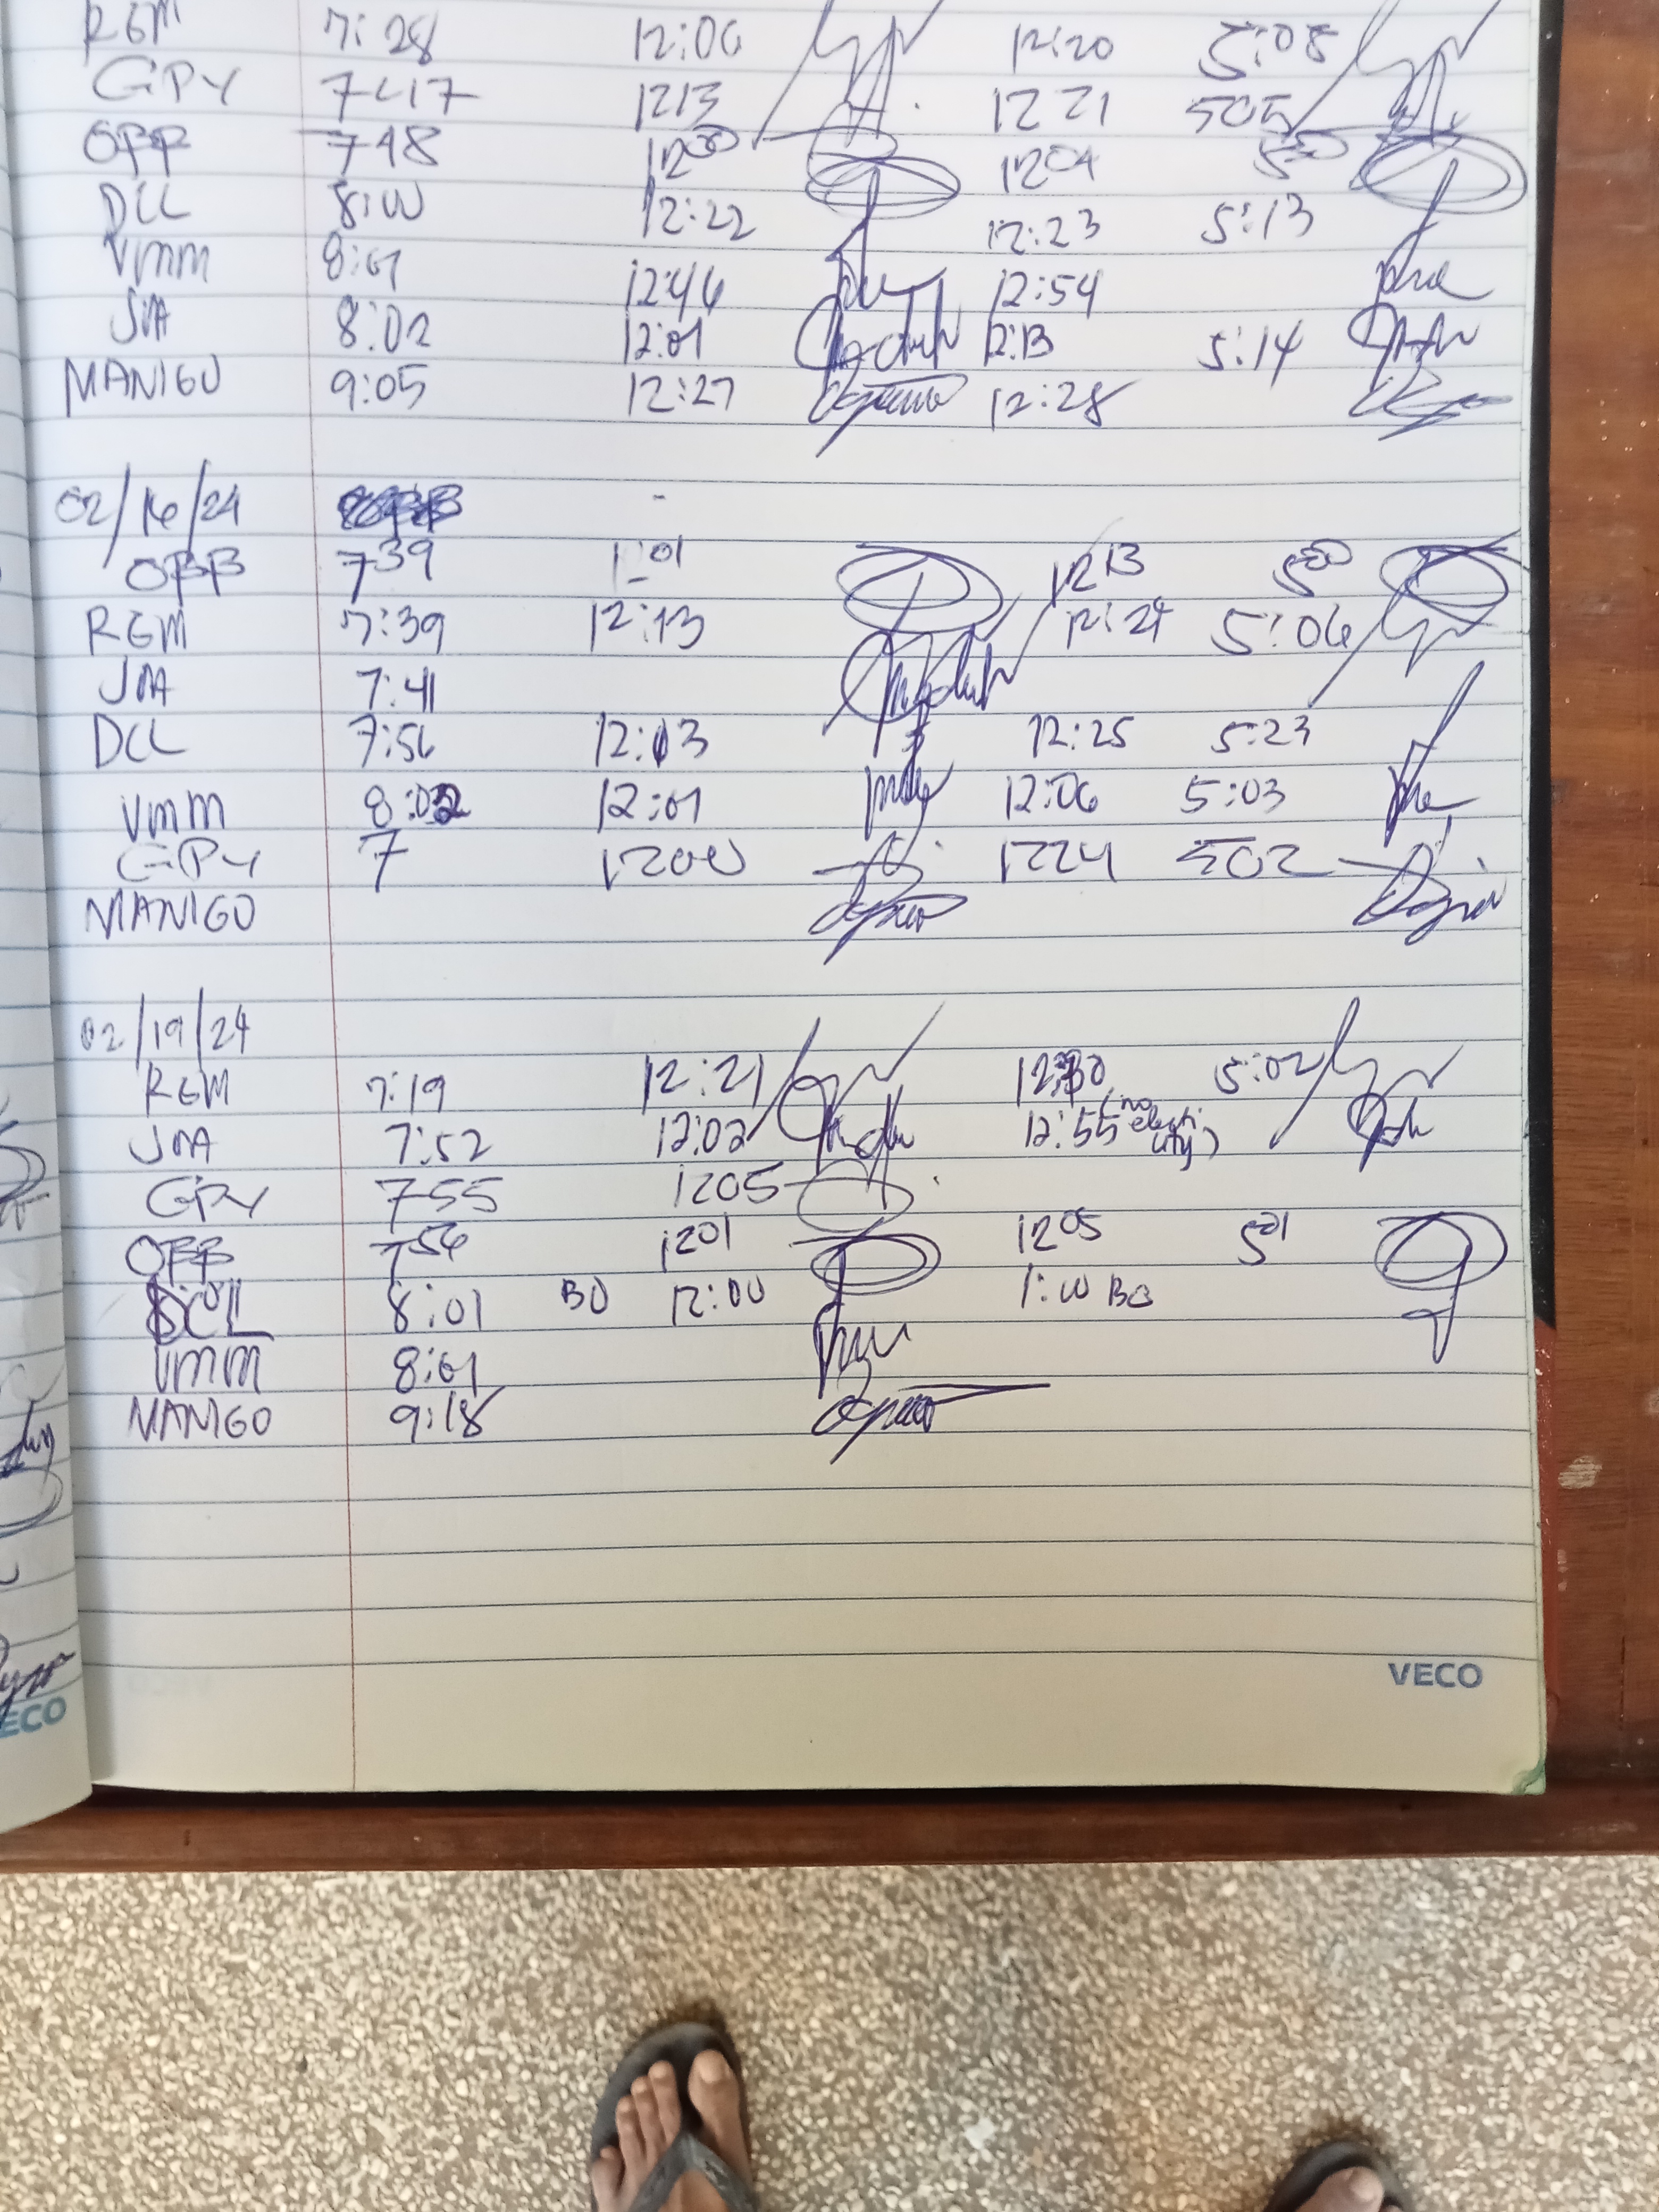 RGM 7:28 12:06 12:20 5:05
GPY 7:17 1213 1221 505
OBB 748 12 00 1204 5 00
DCL 8:00 12:22 12:23 5:13
VMM 8:01 12:46 12:54
JMA 8:02 12:01 12:13 5:14
MANIGO 9:05 12:27 12:28
02/16/24
OBB 7 39 1 01 12 13 5 00
RGM 7:39 12:13 12:24 5:06
JMA 7:41
DCL 7:56 12:13 12:25 5:23
VMM 8:02 12:01 12:06 5:03
GPY 7 1200 1224 502
MANIGO
02/19/24
RGM 7:19 12:21 12:30 5:02
JMA 7:52 12:02 12:55 (no electricity)
GPY 755 1205
OBB 7 56 1201 1205 5 01
DCL 8:01 BO 12:00 1:00 BO
VMM 8:01
MANIGO 9:18
VECO
ECO